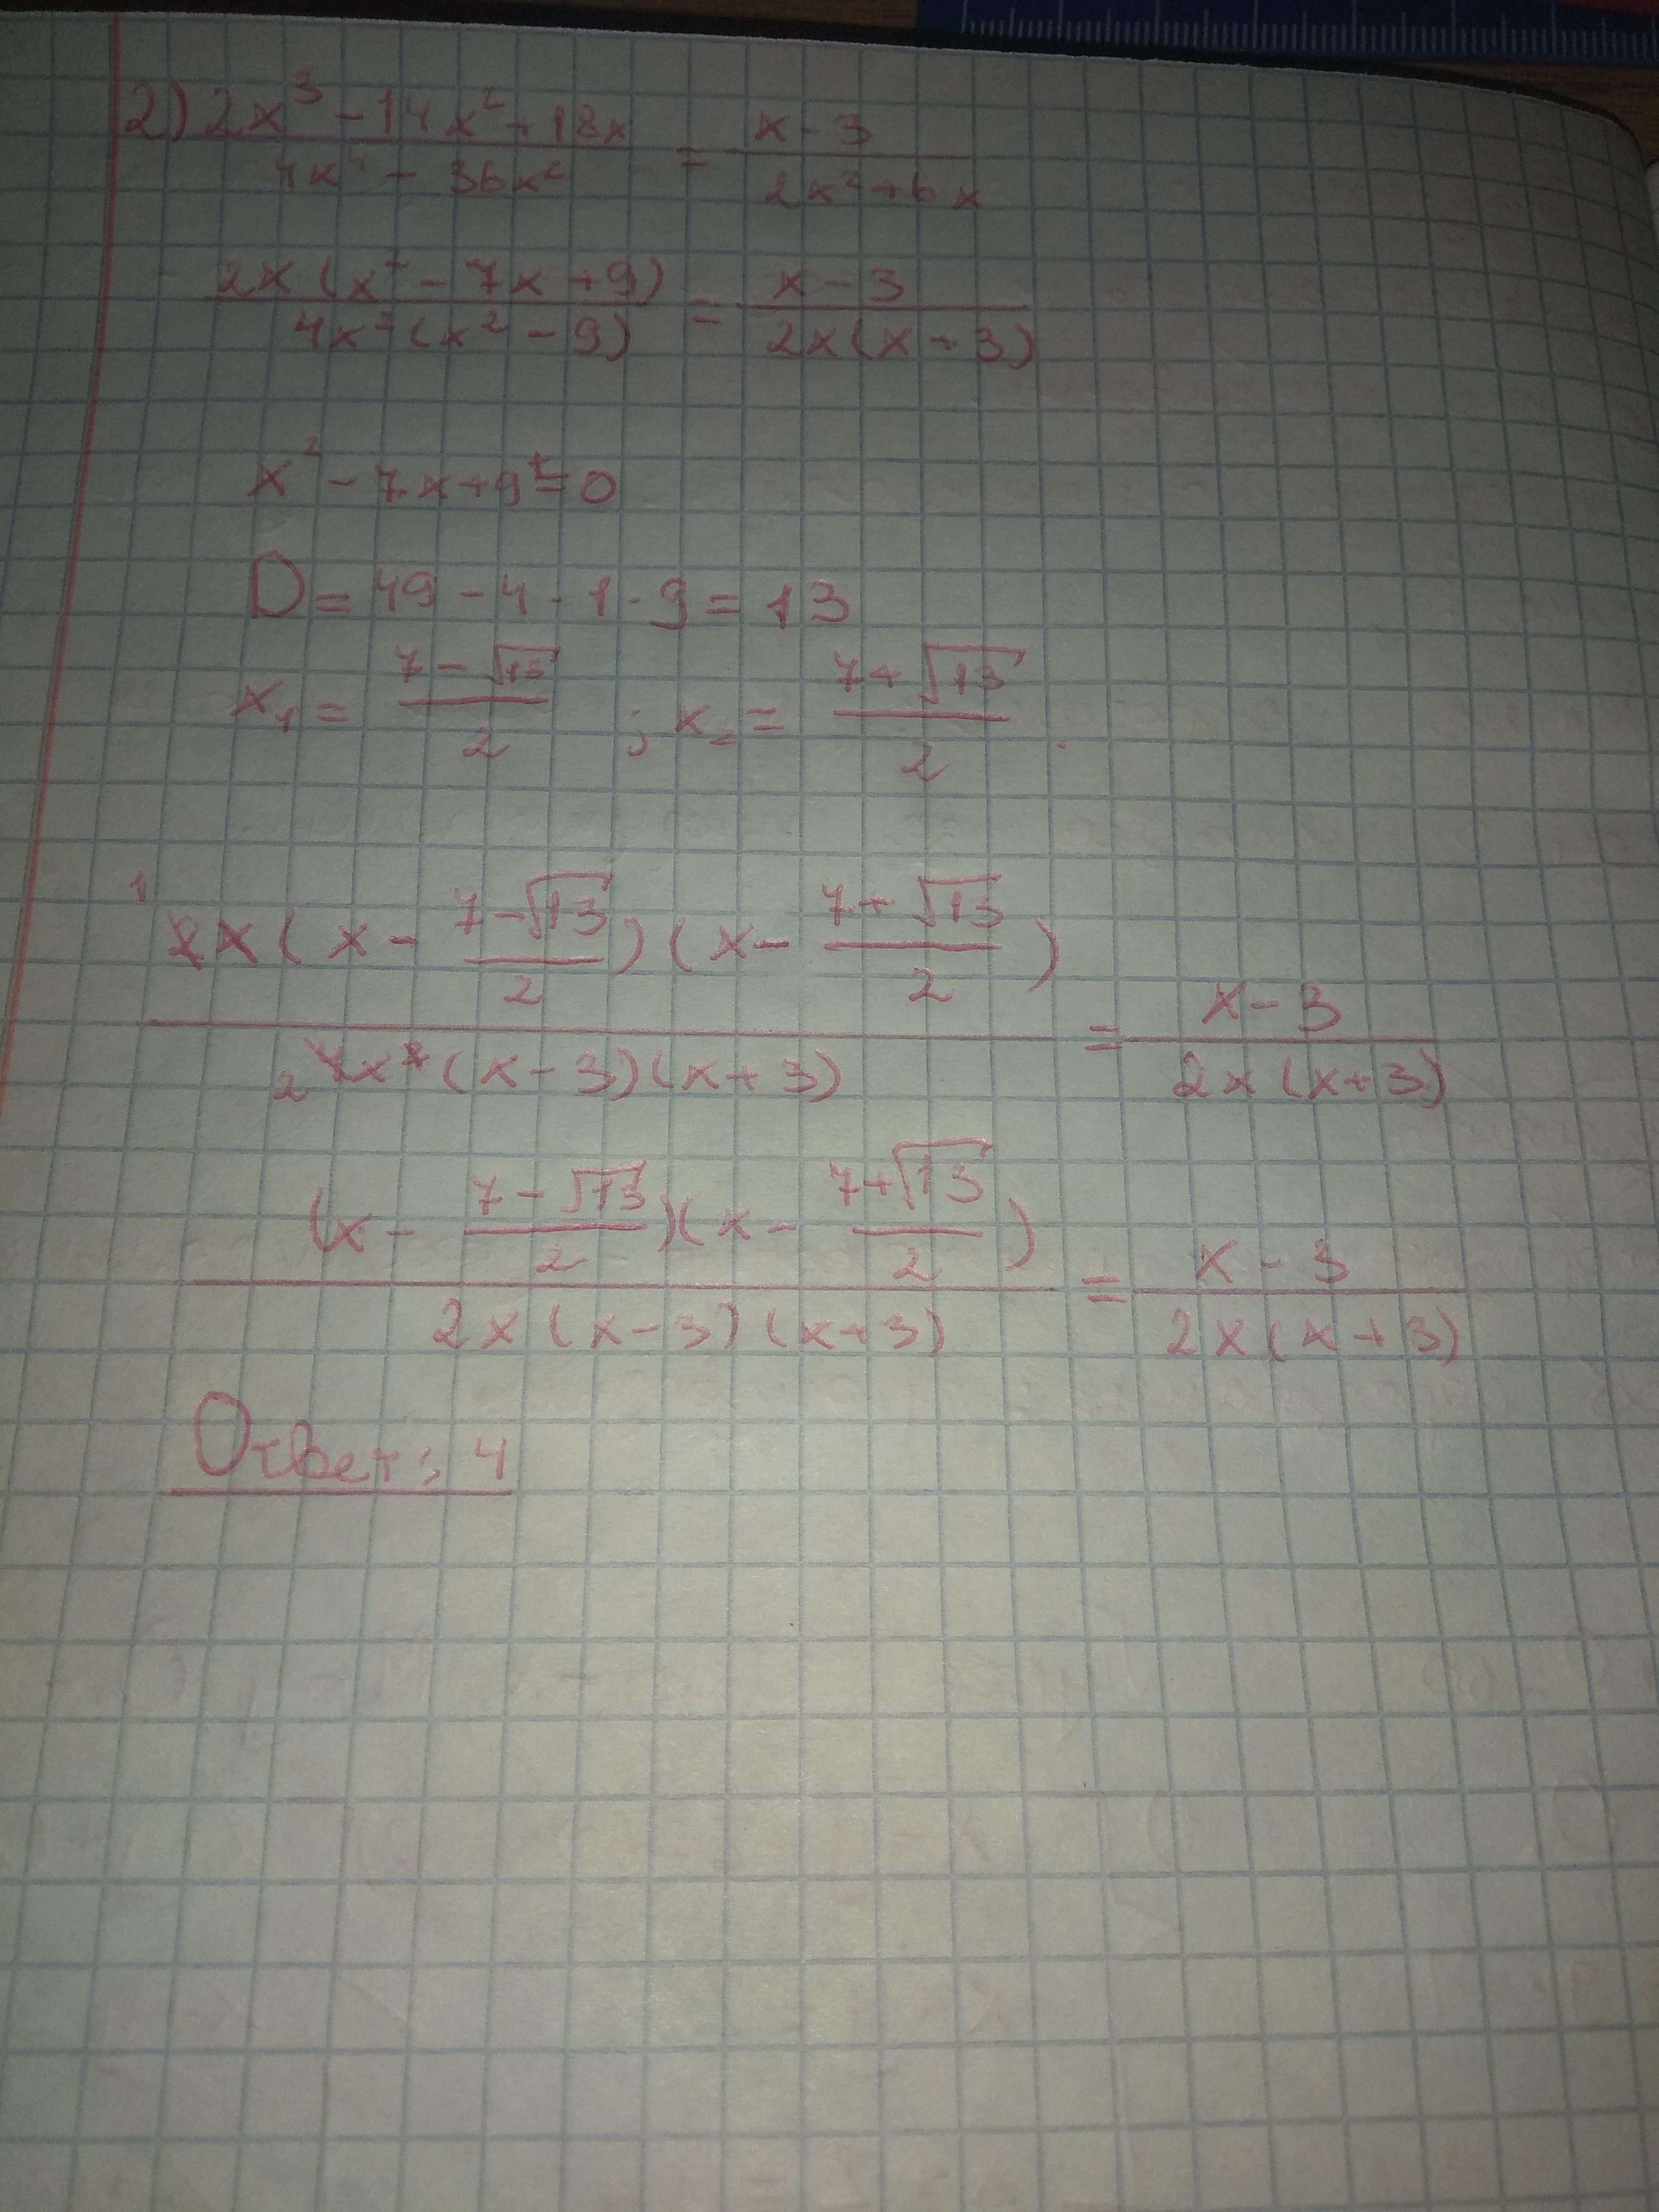 2) (2x³ - 14x² + 18x)/(4x⁴ - 36x²) = (x - 3)/(2x² + 6x)
2x(x² - 7x + 9)/(4x²(x² - 9)) = (x - 3)/(2x(x + 3))
x² - 7x + 9 = 0
D = 49 - 4 · 1 · 9 = 13
x₁ = (7 - √13)/2 ; x₂ = (7 + √13)/2 .
2x(x - (7 - √13)/2)(x - (7 + √13)/2)/(4x²(x - 3)(x + 3)) = (x - 3)/(2x(x + 3))
(x - (7 - √13)/2)(x - (7 + √13)/2)/(2x(x - 3)(x + 3)) = (x - 3)/(2x(x + 3))
Ответ: 4